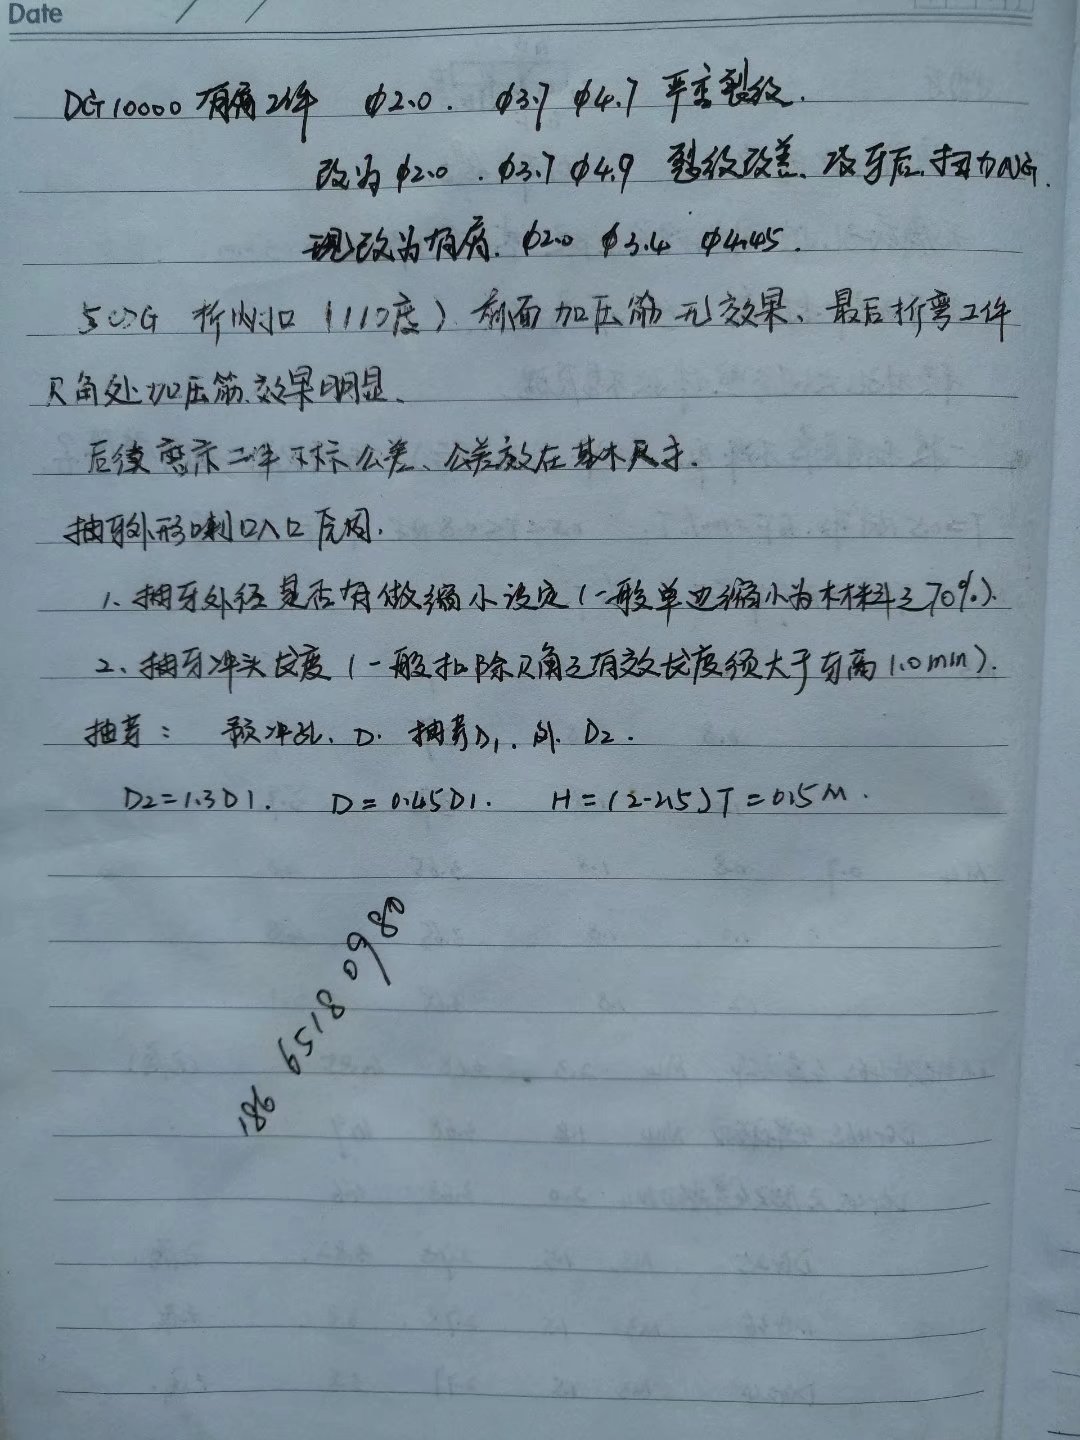 Date
DG10000 有屑工件 φ2.0. φ3.7 φ4.7 严重裂纹.
改为φ2.0. φ3.7 φ4.9 裂纹改善、攻牙后.扭力NG.
现改为有屑. φ2.0 φ3.4 φ4.45.
折内扣(110度) 前面加压筋无效果、最后折弯工件
R角处加压筋.效果明显、
后续 工件不标公差、公差放在基本尺寸.
抽牙外形喇叭口 原因.
1、抽牙外径是否有做缩小设定(一般单边缩小为本材料之70%).
2、抽牙冲头长度(一般扣除R角之有效长度须大于牙高1.0mm).
抽芽: 预冲孔. D. 抽芽D1. 外. D2.
D2=1.3D1. D=0.45D1. H=(2-2.5)T=0.5M.
186 6518 0980